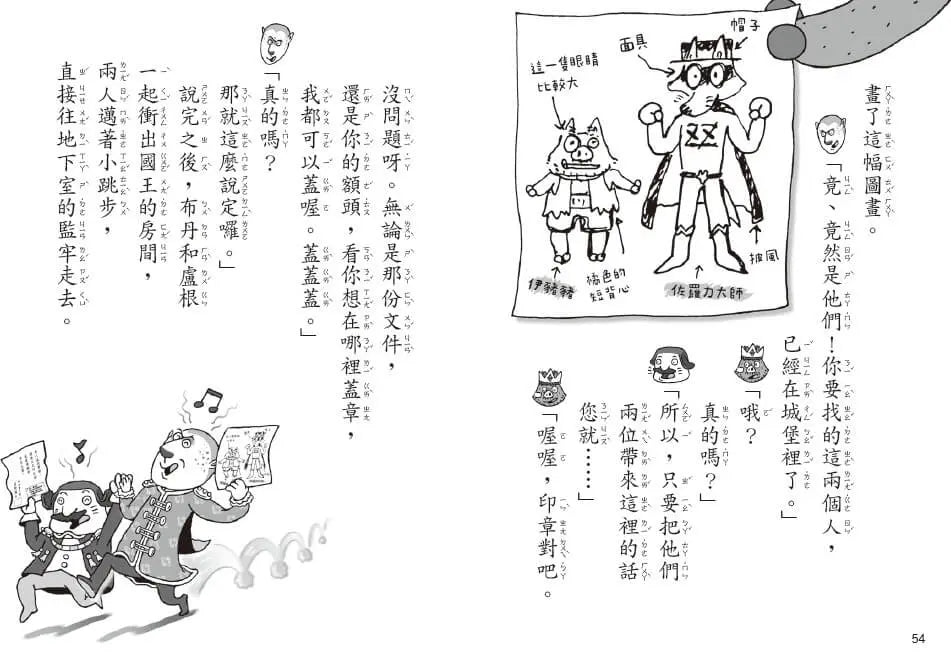 畫了這幅圖畫。
「竟、竟然是他們!你要找的這兩個人,
已經在城堡裡了。」
「哦?
真的嗎?」
「所以,只要把他們
兩位帶來這裡的話
您就……」
「喔喔,印章對吧。
帽子
面具
這一隻眼睛
比較大
披風
佐羅力大師
橘色的
短背心
伊豬豬
ZZ
54
沒問題呀。無論是那份文件,
還是你的額頭,看你想在哪裡蓋章,
我都可以蓋喔。蓋蓋蓋。」
「真的嗎?
那就這麼說定囉。」
說完之後,布丹和盧根
一起衝出國王的房間,
兩人邁著小跳步,
直接往地下室的監牢走去。